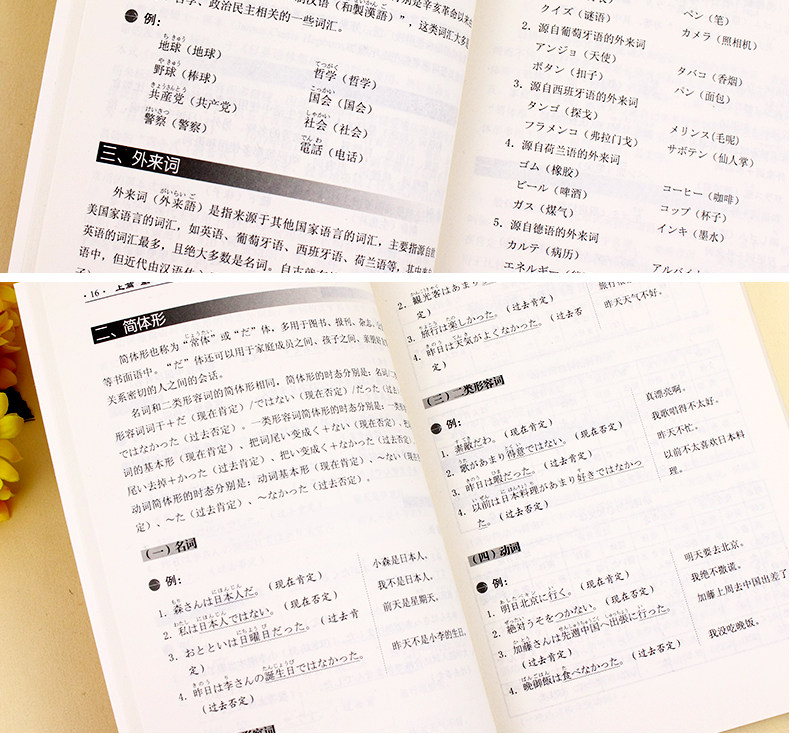 汉语（和製漢語）"，这类词汇大多
学、政治民主相关的一些词汇。
例：
ちきゅう
地球（地球）
てつがく
哲学（哲学）
やきゅう
野球（棒球）
こっかい
国会（国会）
きょうさんとう
共産党（共产党）
しゃかい
社会（社会）
けいさつ
警察（警察）
でんわ
電話（电话）
三、外来词
がいらいご
外来词（外来語）是指来源于其他国家语言的词汇，主要指源自欧
美国家语言的词汇，如英语、葡萄牙语、西班牙语、荷兰语等，其中来自
英语的词汇最多，且绝大多数是名词。
语中，但近代由汉语
クイズ（谜语）
ペン（笔）
カメラ（照相机）
2. 源自葡萄牙语的外来词
アンジョ（天使）
タバコ（香烟）
ボタン（扣子）
パン（面包）
3. 源自西班牙语的外来词
タンゴ（探戈）
メリンス(毛呢)
フラメンコ（弗拉门戈）
サボテン（仙人掌）
4. 源自荷兰语的外来词
ゴム（橡胶）
コーヒー（咖啡）
ビール（啤酒）
コップ（杯子）
ガス（煤气）
インキ（墨水）
5. 源自德语的外来词
カルテ（病历）
エネルギー
アルバイト
·16· 上篇
二、简体形
じょうたい
简体形也称为"常体"或"だ"体，多用于图书、报刊、杂志、
等书面语中。"だ"体还可以用于家庭成员之间、孩子之间、亲朋好友
关系密切的人之间的会话。
名词和二类形容词的简体形相同，简体形的时态分别是：名词/二
形容词词干+だ（现在肯定）/ではない（现在否定）/だった（过去
ではなかった（过去否定）。一类形容词简体形的时态分别是：一类
词的基本形（现在肯定）、把词尾い变成く+ない（现在否定）、把
尾い去掉+かった（过去肯定）、把い变成く+なかった（过去否定）。
动词简体形的时态分别是：动词基本形（现在肯定）、～ない（现在
定）、～た（过去肯定）、～なかった（过去否定）。
（一）名词
例：
もり　にほんじん
1. 森さんは日本人だ。（现在肯定）
小森是日本人。
わたし　にほんじん
2. 私は日本人ではない。（现在否定）
我不是日本人。
にちようび
3. おとといは日曜日だった。（过去肯
定）
前天是星期天。
きのう　り　たんじょうび
4. 昨日は李さんの誕生日ではなかった。
（过去否定）
昨天不是小李的生日。
容词
かんこうきゃく
2. 観光客はあまり
定）
りょこう　たの
3. 旅行は楽しかった。（过去肯定）
きのう　てんき
4. 昨日は天気がよくなかった。（过去否
定）
昨天天气不好。
（三）二类形容词
例：
すてき
1. 素敵だわ。（现在肯定）
真漂亮啊。
うた　とくい
2. 歌があまり得意ではない。（现在否定）
我歌唱得不太好。
きのう　ひま
3. 昨日は暇だった。（过去肯定）
昨天不忙。
いぜん　にほんりょうり　す
4. 以前は日本料理があまり好きではなかっ
た。（过去否定）
以前不太喜欢日本料
理。
（四）动词
例：
あした ペキン　い
1. 明日北京に行く。（现在肯定）
明天要去北京。
ぜったい
2. 絶対うそをつかない。（现在否定）
我绝不撒谎。
かとう　せんしゅうちゅうごく　しゅっちょう　い
3. 加藤さんは先週中国へ出張に行った。
（过去肯定）
加藤上周去中国出差了
ばんごはん　た
4. 晩御飯は食べなかった。（过去否定）
我没吃晚饭。